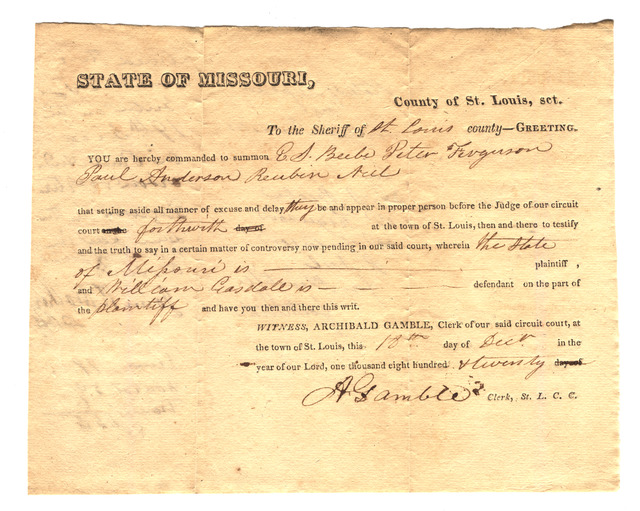 STATE OF MISSOURI,
County of St. Louis, sct.
To the Sheriff of St. Louis county—GREETING.
YOU are hereby commanded to summon E S. Beebe Peter Ferguson
Paul Anderson Reuben Neil
that setting aside all manner of excuse and delay they be and appear in proper person before the Judge of our circuit
court on the forthwith day of at the town of St. Louis, then and there to testify
and the truth to say in a certain matter of controversy now pending in our said court, wherein the State
of Missouri is — plaintiff ,
and William Easdale is — defendant on the part of
the plaintiff and have you then and there this writ.
WITNESS, ARCHIBALD GAMBLE, Clerk of our said circuit court, at
the town of St. Louis, this 18th day of Decr in the
year of our Lord, one thousand eight hundred & twenty day of
A Gamble Clerk, St. L. C. C.